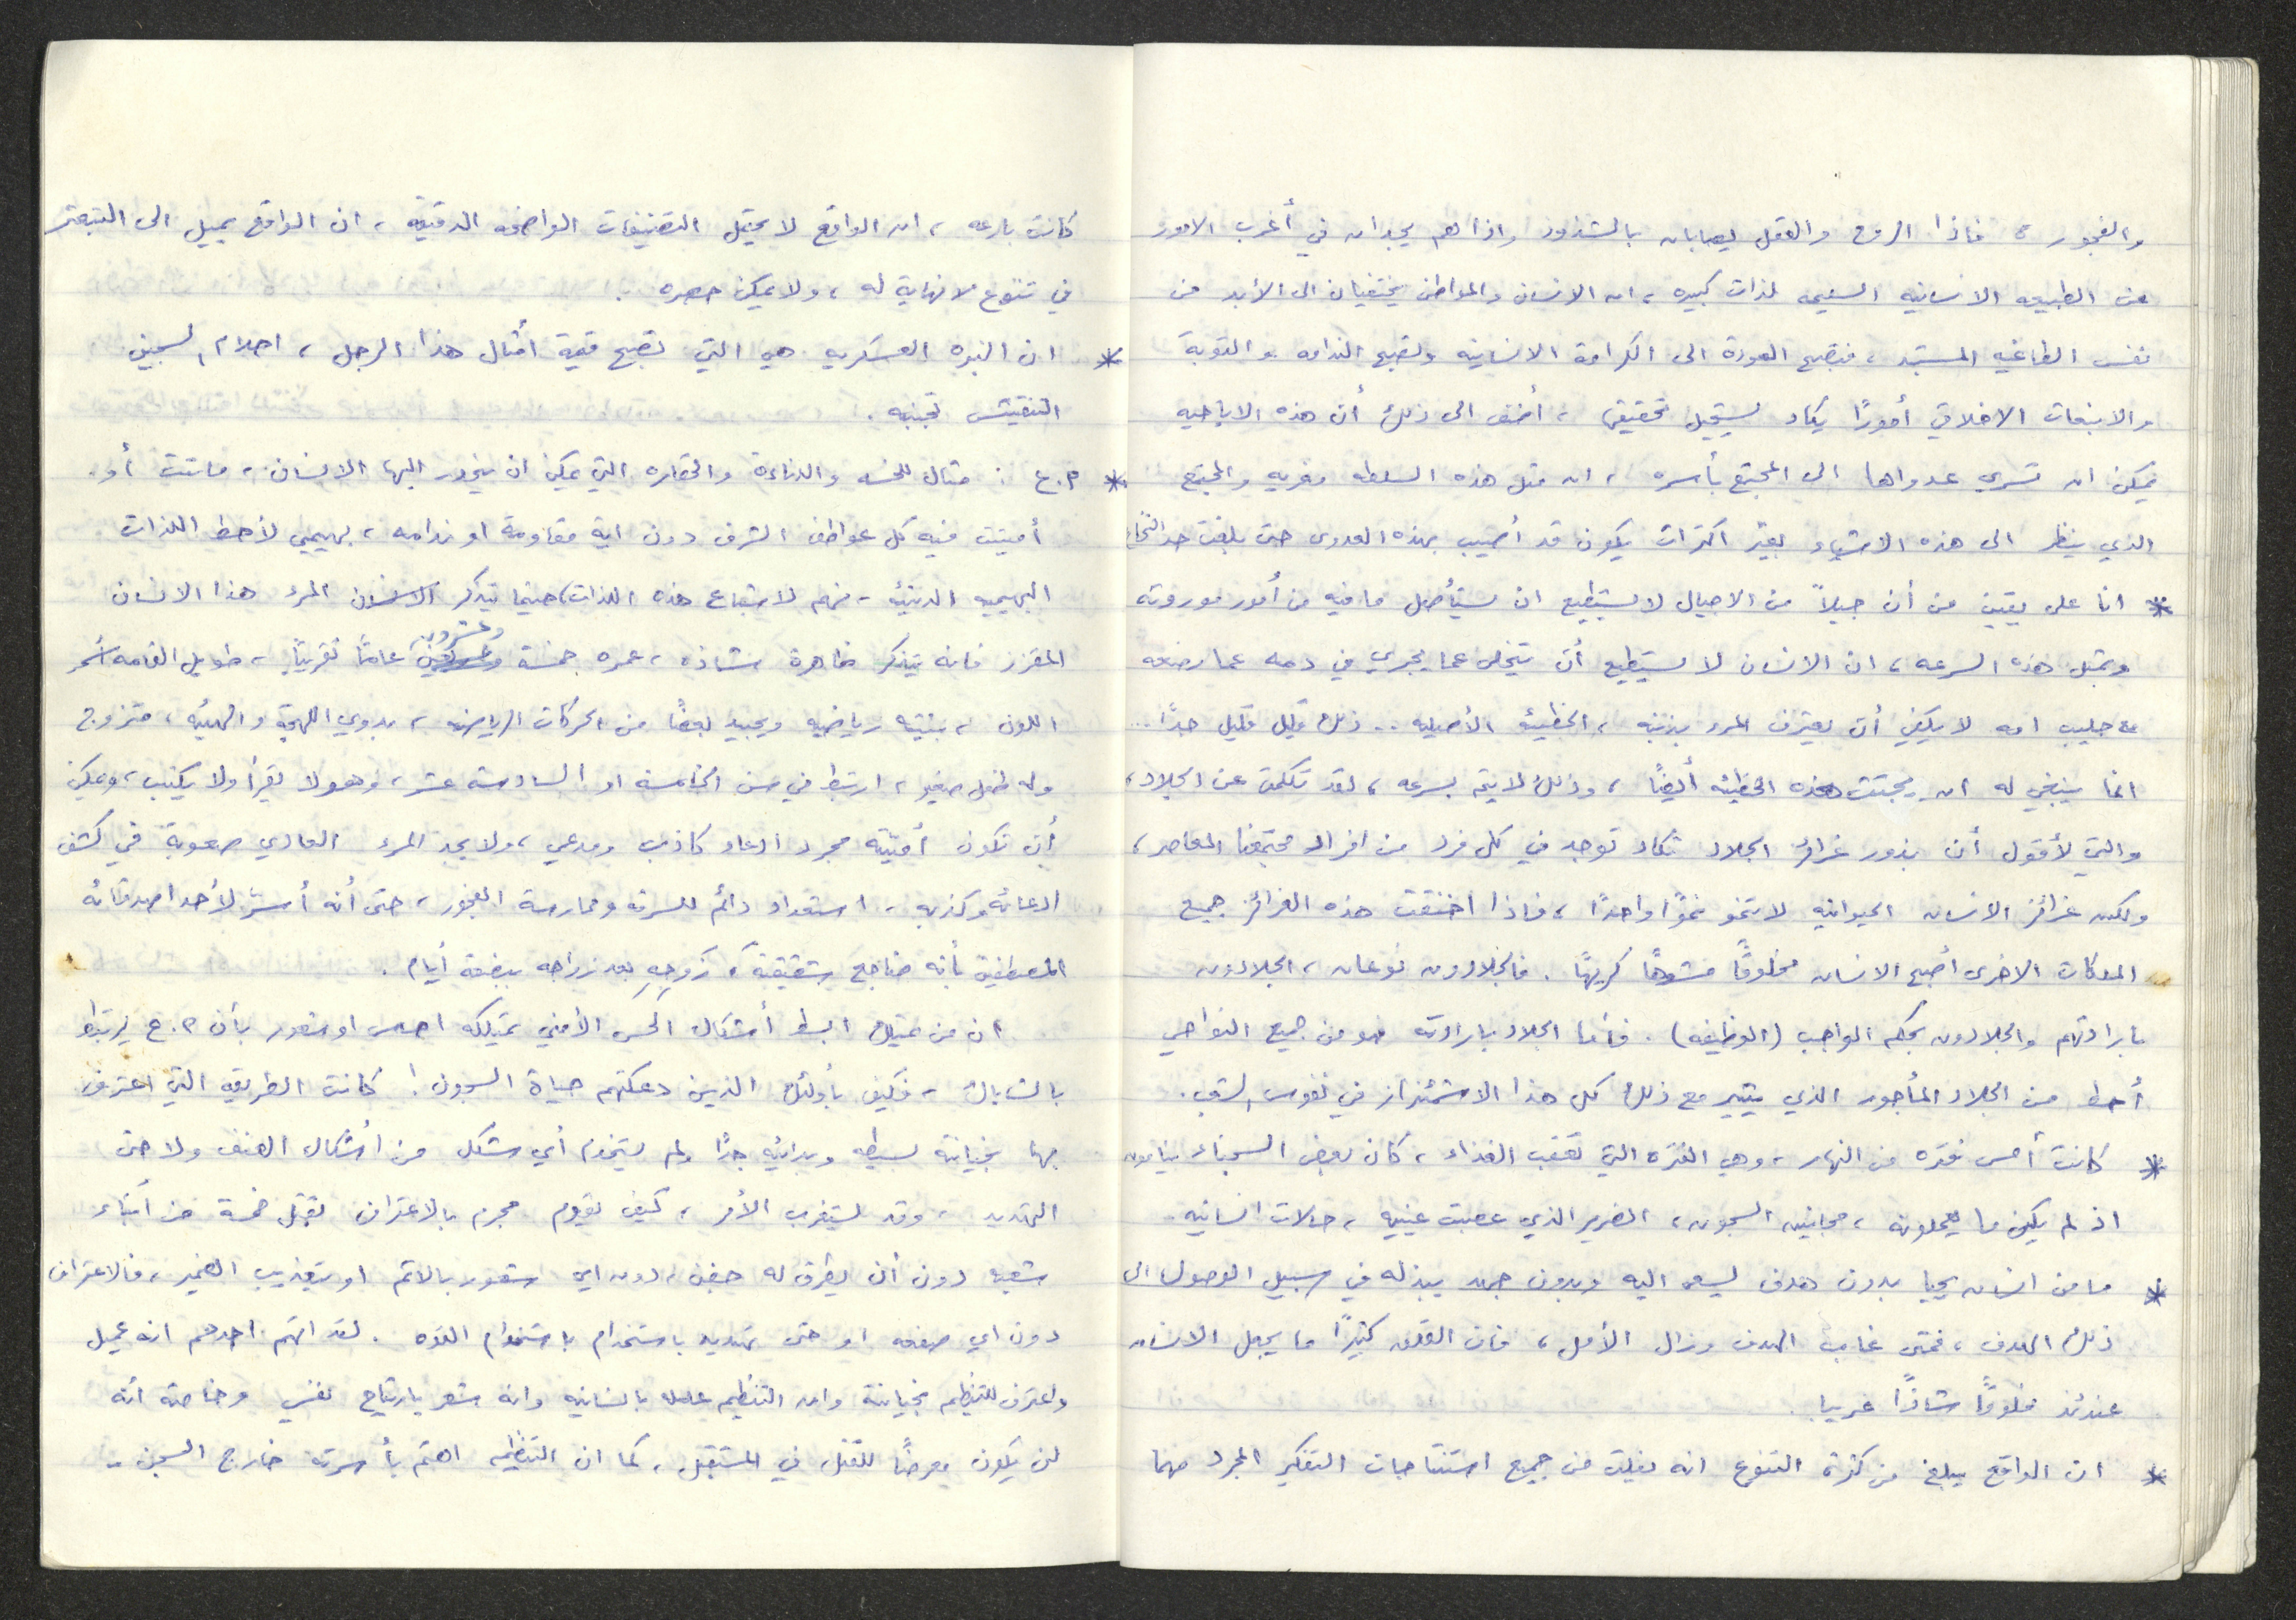 والفجور، فاذا الروح والعقل يصابان بالشذوذ واذا هم يجدان في أغرب الامور
عن الطبيعه الانسانيه السليمه لذات كبيره، ان الانسان والمواطن يختفيان الى الأبد من
نفس الطاغيه المستبد، فتصبح العودة الى الكرامة الانسانيه وتصبح الندامه والتوبة
والانبعاث الاخلاقي أمورًا يكاد يستحيل تحقيقها، أضف الى ذلك أن هذه الاباحيه
يمكن ان تسري عدواها الى المجتع بأسره، ان مثل هذه السلطه مغريه والمجتمع
الذي ينظر الى هذه الاشياء بغير اكتراث يكون قد أصيب بهذه العدوى حتى بلغت حد النخاع
* انا على يقين من أن جيلاً من الاجيال لا يستطيع ان يستأصل ما فيه من أمور موروثه
وبمثل هذه السرعه، ان الانسان لا يستطيع أن يتخلى عما يجري في دمه عما رضعه
مع حليب امه لا يكفي أن يعترف المرء بذنبه، الخطيئه الأصيله .. ذلك قليل قليل جدًا...
انما ينبغي له ان يجتث هذه الخطيئه أيضًا، وذلك لا يتم بسرعه، لقد تكلمت عن الجلاد،
وانني لأقول أن بذور غرائز الجلاد تكاد توجد في كل فرد من افراد مجتمعنا المعاصر،
ولكن غرائز الانسان الحيوانيه لا تنمو نموًا واحدًا، فاذا اختنقت هذه الغرائز جميع
الملكات الاخرى أصبح الانسان مخلوقًا مشوهًا كريهًا. فالجلادون نوعان، الجلادون
بارادتهم والجلادون بحكم الواجب (الوظيفه). فأما الجلاد بارادته فهو من جميع النواحي
أحط من الجلاد المأجور الذي يثير مع ذلك كل هذا الاشمئزاز في نفوس الشعب.
* كانت أمس فتره من النهار، وهي الفتره التي تعقب الغذاء، كان بعض السجناء ينامون
اذ لم يكن ما يعملونه، مجانين السجون، الضرير الذي عصبت عينيه، حالات انسانيه.
* ما من انسان يحيا بدون هدف يسعى اليه وبدون جهد يبذله في سبيل الوصول الى
ذلك الهدف، فمتى غاب الهدف وزال الأمل، فان القلق كثيرًا ما يجعل الانسان
عندئذ مخلوقًا شاذًا غريبا.
* ان الواقع يبلغ من كثرة التنوع انه يفلت من جميع استنتاجات التفكير المجرد مهما
كانت بارعه، ان الواقع لا يحتمل التصنيفات الواضحه الدقيقه، ان الواقع يميل الى التبعثر
في تنوع لا نهاية له، ولا يمكن حصره.
* ان البزه العسكريه هي التي تصبح قيمة أمثال هذا الرجل، احلام السجين
التفتيش تجنبه.
* م.ع : مثال للخسه والدناءة والحقاره التي يمكن ان ينحدر اليها الانسان، ماتت أو.
أميتت فيه كل عواطف الشرف دون اية مقاومة او ندامه، بهيمي لأحط اللذات
البهيميه الدنيئه - نهم لاشباع هذه اللذات، حينما يتذكر الانسان المرء هذا الانسان
المقزز فانه يتذكر ظاهرة شاذه، عمره خمسة وعشرون عامًا تقريبًا، طويل القامه أسمر
اللون، بنيته رياضيه ويجيد بعضًا من الحركات الرياضه، بدوي اللهجة والهيئه، متزوج
وله طفل صغير، ارتبط في سن الخامسه او السادسه عشر، وهو لا يقرأ ولا يكتب، ويمكن
أن تكون أميته مجرد ادعاء كاذب ومدعي، ولا يجد المرء العادي صعوبة في كشف
ادعائه وكذبه، استعداد دائم للسرقه وممارسة الفجور، حتى أنه أسر لأحد اصدقائه
المصطفين بأنه ضاجع شقيقة زوجه بعد زواجه ببضعة أيام.
ان من يمتلك ابسط أشكال الحس الأمني يمتلكه احساس او شعور بأن م.ع يرتبط
بالشاباك، فكيف بأولئك الذين دعكتهم حياة السجون! كانت الطريقه التي اعترف
بها بخيانته بسيطه وبدائيه جدًا ولم يستخدم أي شكل من أشكال العنف ولا حتى
التهديد، وقد يستغرب الأمر، كيف يقوم مجرم بالاعتراف بقتل خمسة من أبناء
شعبه دون ان يطرف له جفن، دون اي شعور بالاثم او بتعذيب الضمير، فالاعتراف
دون اي صفعه او حتى تهديد باستخدام باستخدام القوه. لقد اتهم احدهم انه عميل
واعترف للتنظيم بخيانته وان التنظيم عامله بانسانيه وانه شعر بارتياح نفسي وخاصة انه
لن يكون معرضًا للقتل في المستقبل، كما ان التنظيم اهتم بأسرته خارج السجن -